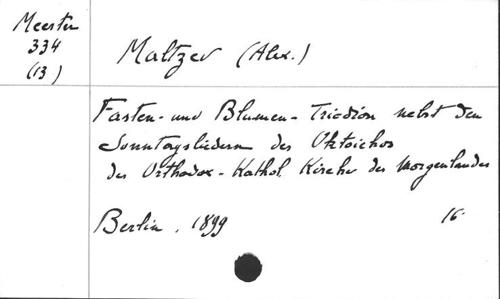 Meester
334
(13)
Maltzev (Alex.)
Fasten- und Blumen- Triodion nebst den
Sonntagsliedern des Oktoichos
der Orthodox-Kathol. Kirche des Morgenlandes
Berlin, 1899
16°